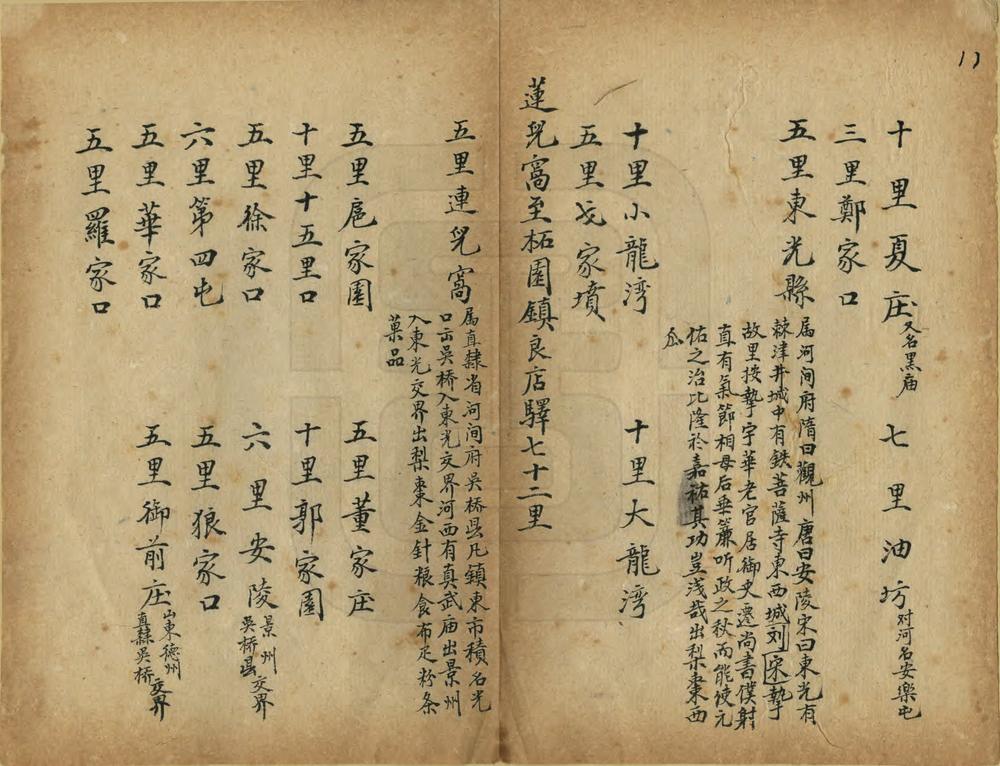 十里夏庄 又名黑庙 七里油坊 对河名安樂屯
三里鄭家口
五里東光縣 属河间府隋曰觀州唐曰安陵宋曰東光有
棘津井城中有鉄菩薩寺東西城刘宋摯
故里按摯字華老官居御史遷尚書僕射
直有氣節相母后垂簾听政之秋而能使元
佑之治比隆於嘉祐其功豈浅哉出梨棗西
瓜
十里小龍湾 十里大龍湾
五里戈家墳
蓮兒窩至柘園鎮良店驛七十二里
五里連兒窩 属直隸省河间府吳桥县凡鎮東市積名光
口亩吳桥入東光交界河西有真武庙出景州
入東光交界出梨棗金針粮食布疋粉条
菓品
五里扈家圈 五里董家庄
十里十五里口 十里郭家圈
五里徐家口 六里安陵 景州吳桥县交界
六里第四屯 五里狼家口
五里華家口 五里御前庄 山東德州直隸吳桥交界
五里羅家口